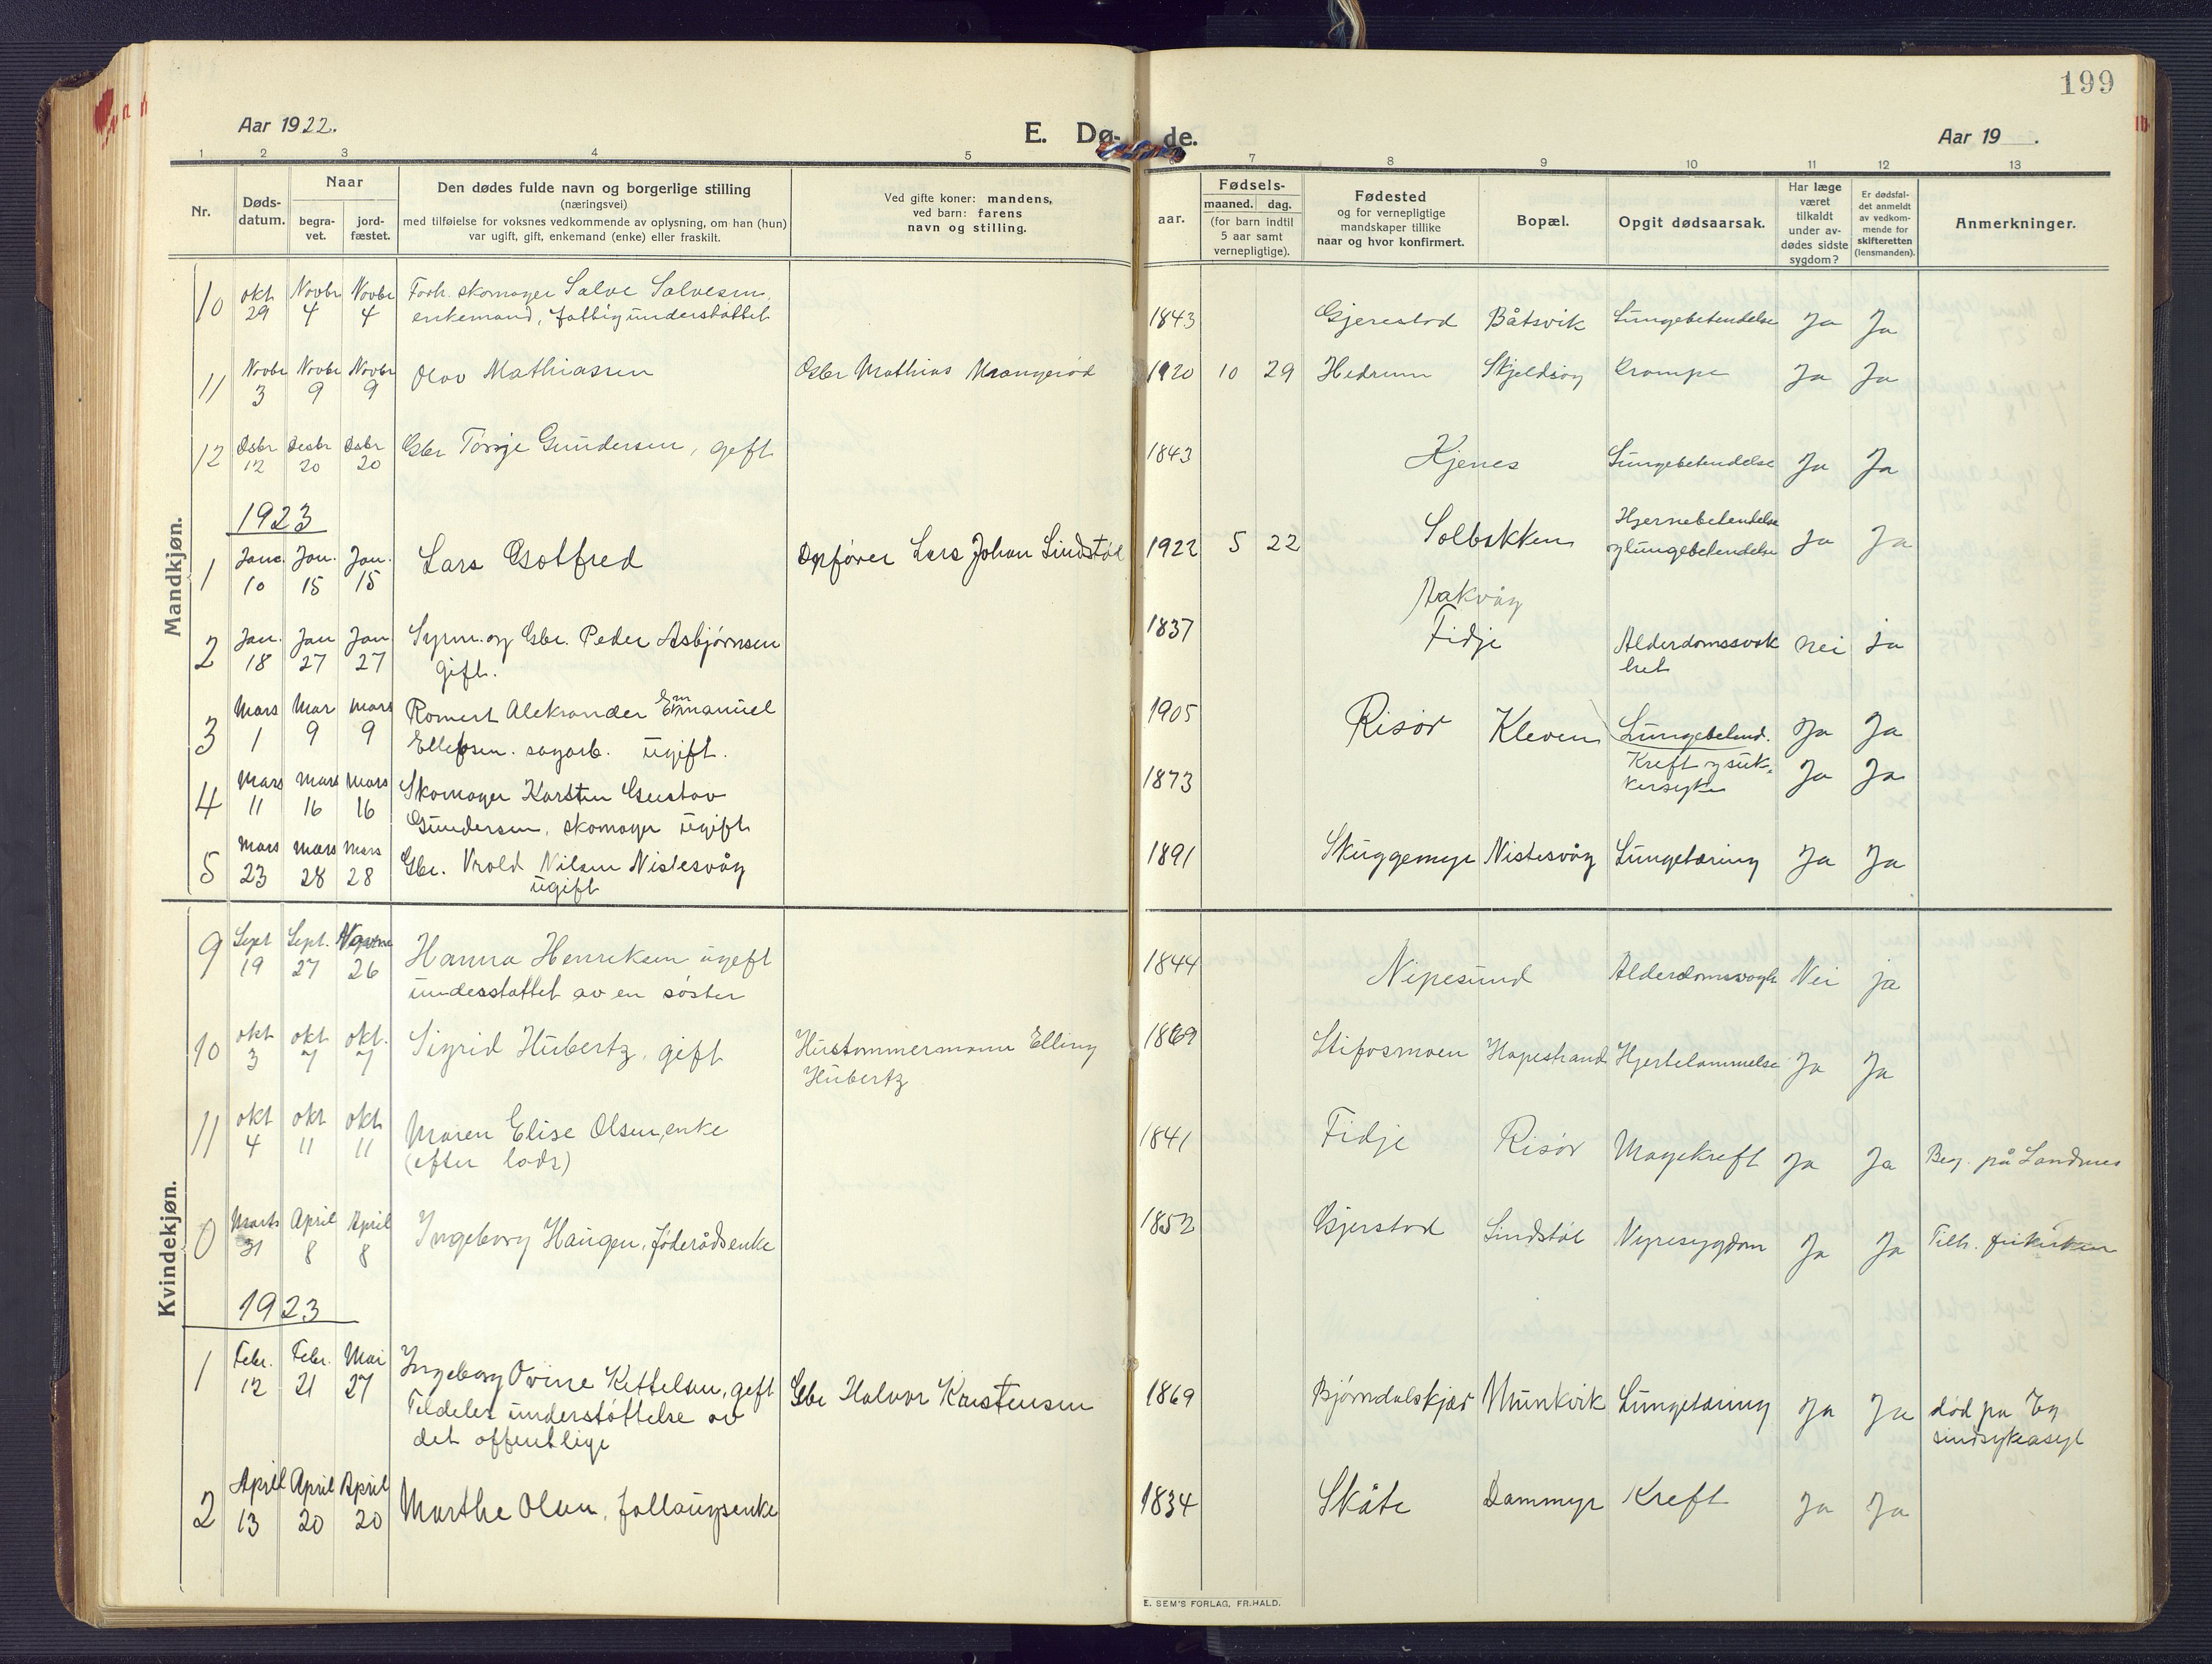 199
Aar 1922.
E. Dø-
de.
Aar 19 .
1 2 3 4 5 7 8 9 10 11 12 13
Nr.
Døds-
datum.
Naar
begra-
vet.
jord-
fæstet.
Den dødes fulde navn og borgerlige stilling
(næringsvei)
med tilføielse for voksnes vedkommende av oplysning, om han (hun)
var ugift, gift, enkemand (enke) eller fraskilt.
Ved gifte koner: mandens,
ved barn: farens
navn og stilling.
aar.
Fødsels-
maaned. dag.
(for barn indtil
5 aar samt
vernepligtige).
Fødested
og for vernepligtige
mandskaper tillike
naar og hvor konfirmert.
Bopæl.
Opgit dødsaarsak.
Har læge
været
tilkaldt
under av-
dødes sidste
sygdom?
Er dødsfal-
det anmeldt
av vedkom-
mende for
skifteretten
(lensmanden).
Anmerkninger.
Mandkjøn.
10 okt 29 Novbr 4 Novbr 4 Forh. skomager Salve Salvesen,
enkemand, fattigunderstøttet
1843 Gjerestad Båtsvik Lungebetendelse Ja Ja
11 Novbr 3 Novbr 9 Novbr 9 Olav Mathiassen Gbr Mathias 1920 10 29 Hedrum Skjeldsøy Krampe Ja Ja
12 Desbr 12 Desbr 20 Desbr 20 Gbr Tørje Gundersen, gift 1843 Hjenes Lungebetendelse Ja Ja
1923
1 Janu. 10 Jan. 15 Jan. 15 Lars Gotfred Lars Johan Lindstøl 1922 5 22 Solbakken Hjernebetendelse
og lungebetendelse Ja Ja
Aakvåg
2 Jan. 18 Jan 27 Jan 27 Sym. og Gbr. Peder Asbjørnsen
gift.
1837 Fidje Alderdomssvak
het nei Ja
3 Mars 1 Mar 9 Mars 9 Romert Aleksander Emmanuel
Ellefsen. sagarb. ugift.
1905 Risør Kleven Lungebetend. Ja Ja
4 Mars 11 Mars 16 Mars 16 Skomager Karsten Gustav
Gundersen, skomager ugift
1873 Kreft og suk-
kersyke Ja Ja
5 Mars 23 Mars 28 Mars 28 Gbr. Vrold Nilsen Nistesvåg
ugift
1891 Skuggemyr Nistesvåg Lungetæring Ja Ja
Kvindekjøn.
9 Sept 19 Sept. 27 26 Hanna Henriksen ugift
understøttet av en søster
1844 Nipesund Alderdomssvagh Nei ja
10 okt 3 okt 7 okt. 7 Sigrid Hubertz, gift Hustømmermann Elling
Hubertz
1869 Stifosmoen Hopestrand Hjertelammelse Ja Ja
11 okt 4 okt 11 okt 11 Maren Elise Olsen, enke
(efter lods)
1841 Fidje Risør Mavekreft Ja Ja Beg. på Sandnes
0 Marts 31 April 8 April 8 Ingeborg Haugen, føderådsenke 1852 Gjerstad Lindstøl Nyresygdom Ja Ja Tilh. frikirken
1923
1 Febr. 12 Febr. 21 Mai 27 Ingeborg Ovine Kittelsen, gift
Tildeles understøttelse av
det offentlige
Gbr Halvor Kristensen 1869 Bjørndalskjær Munkvik Lungetæring Ja Ja død på Eg
sindsykeasyl
2 April 13 April 20 April 20 Marthe Olsen, fallaugsenke 1834 Skåte Dammyr Kreft Ja Ja
E. SEM'S FORLAG, FR.HALD.